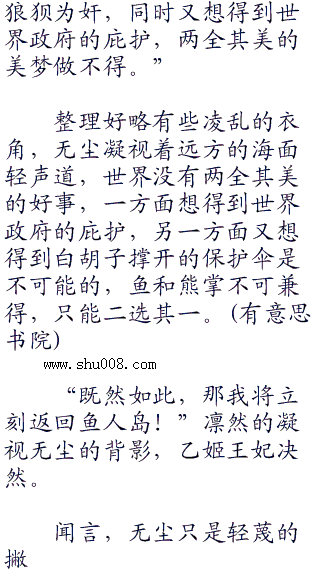 狼狈为奸，同时又想得到世
界政府的庇护，两全其美的
美梦做不得。”
整理好略有些凌乱的衣
角，无尘凝视着远方的海面
轻声道，世界没有两全其美
的好事，一方面想得到世界
政府的庇护，另一方面又想
得到白胡子撑开的保护伞是
不可能的，鱼和熊掌不可兼
得，只能二选其一。(有意思
书院)
www.shu008.com
“既然如此，那我将立
刻返回鱼人岛！”凛然的凝
视无尘的背影，乙姬王妃决
然。
闻言，无尘只是轻蔑的
撇